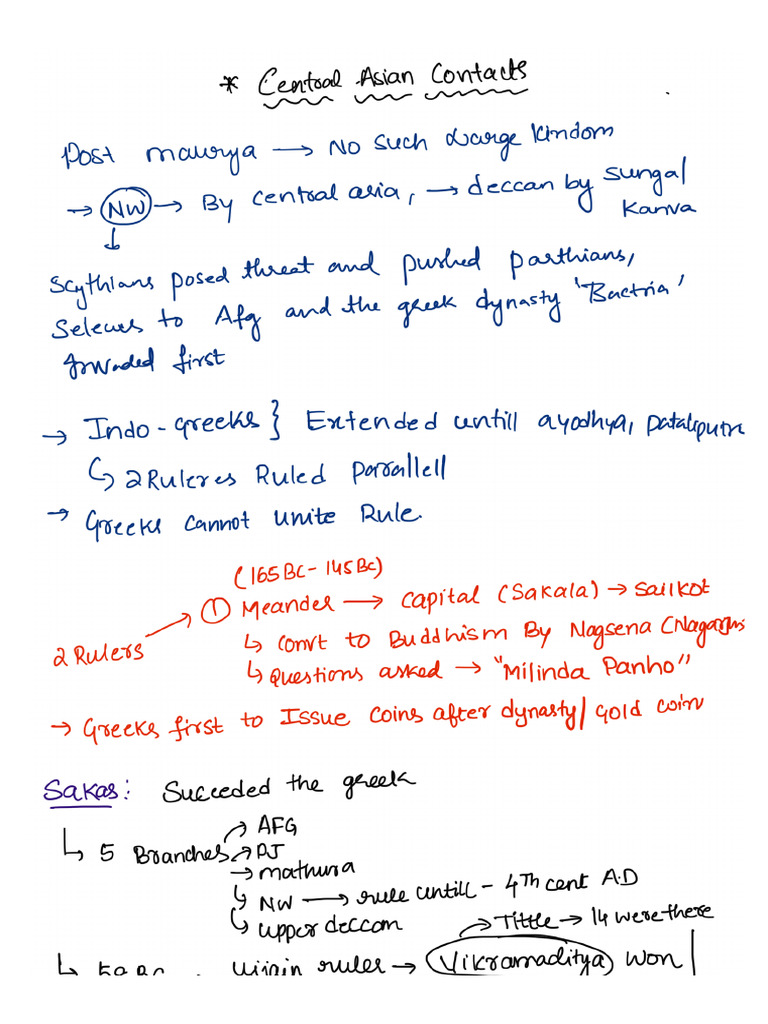 * Central Asian Contacts
Post maurya → No such large kindom
→ NW → By central asia, → deccan by sunga/
Kanva
↓
Scythians posed threat and pushed parthians,
Seleucus to Afg and the greek dynasty 'Bactria'
forwaded first
→ Indo-greeks } Extended untill ayodhya, pataliputr
↳ 2 Ruleres Ruled parrallell
→ Greeks cannot unite Rule.
(165BC - 145BC)
① Meander → capital (Sakala) → Sailkot
2 Rulers
↳ Convt to Buddhism By Nagsena (Nagarjuns
↳ Questions asked → "Milinda Panho"
→ Greeks first to Issue coins after dynasty/ Gold coin
Sakas: Succeeded the greek
↳ 5 Branches → AFG
→ PJ
→ mathura
↳ NW → rule untill - 4Th cent A.D
↳ upper deccom
→ Tittle → 14 were there
↳ rules → Vikramaditya won